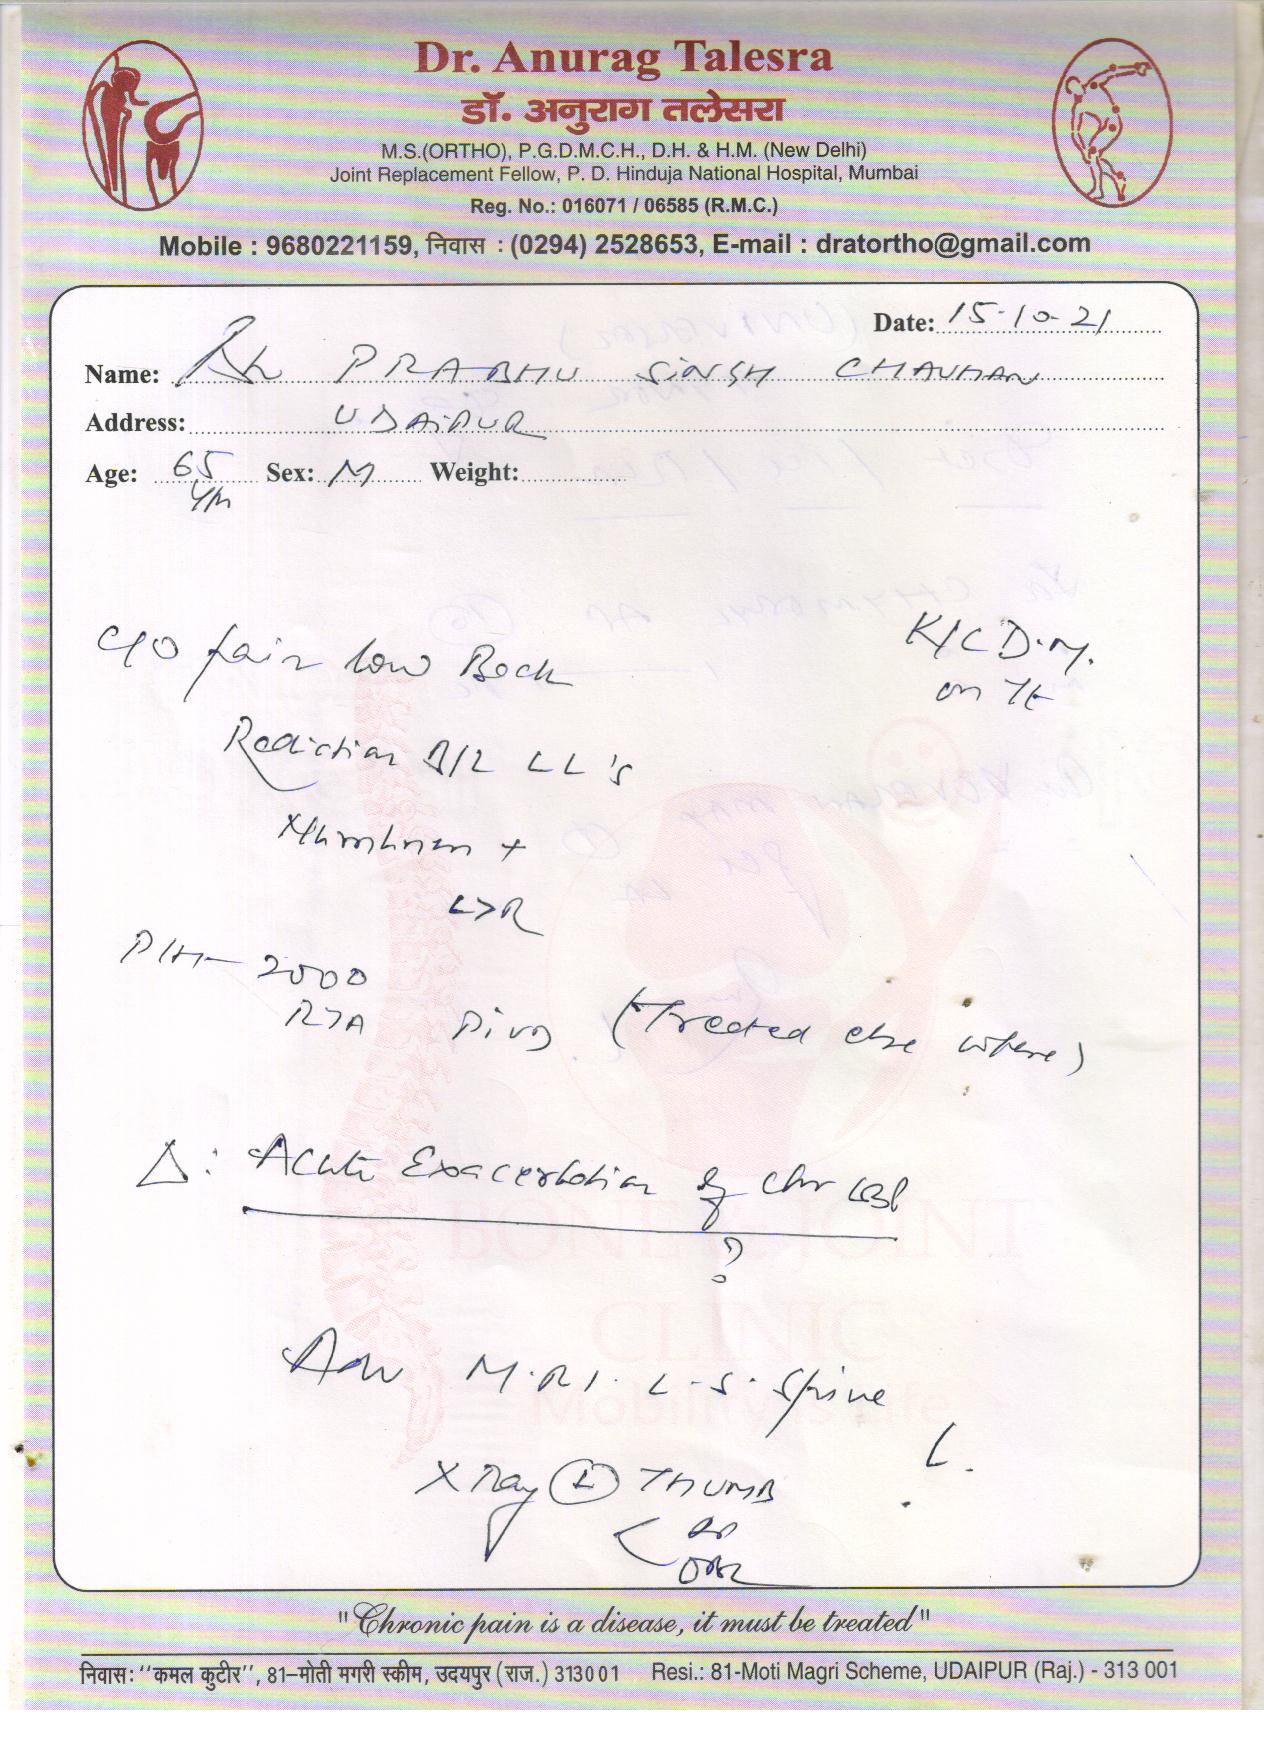 Dr. Anurag Talesra
डॉ. अनुराग तलेसरा
M.S.(ORTHO), P.G.D.M.C.H., D.H. & H.M. (New Delhi)
Joint Replacement Fellow, P. D. Hinduja National Hospital, Mumbai
Reg. No.: 016071 / 06585 (R.M.C.)
Mobile : 9680221159, निवास : (0294) 2528653, E-mail : dratortho@gmail.com
Date: 15.10.21
Name: PRABHU SINGH CHAUHAN
Address: UDAIPUR
Age: 65 Sex: M Weight:
C/O pain low Back
K/C D.M.
on Tt
Radiation B/L LL's
L>R
P/H- 2000
RTA (Treated else where)
Δ: Acute Exacerbation of chr LBP
?
Adv M.R.I. L-S. Spine
X Ray (L) THUMB
BONE & JOINT
CLINIC
Mobility is Life
"Chronic pain is a disease, it must be treated"
निवास: ''कमल कुटीर'', 81–मोती मगरी स्कीम, उदयपुर (राज.) 313001 Resi.: 81-Moti Magri Scheme, UDAIPUR (Raj.) - 313 001